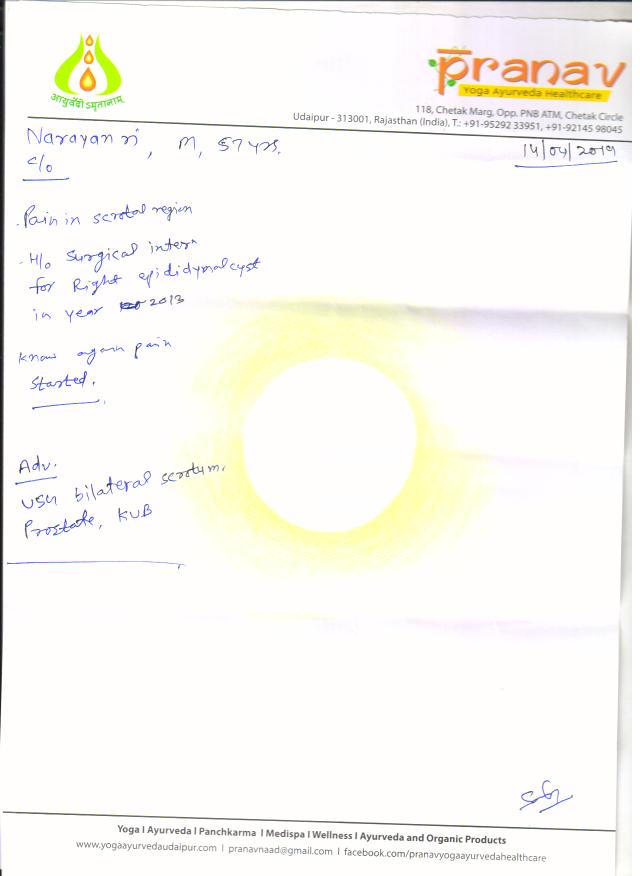 आयुर्वेदोऽमृतानाम्
Pranav
Yoga Ayurveda Healthcare
118, Chetak Marg, Opp. PNB ATM, Chetak Circle
Udaipur - 313001, Rajasthan (India), T.: +91-95292 33951, +91-92145 98045
Narayan , M, 57 yrs.
14/04/2019
c/o
. Pain in scrotal region
. H/o Surgical intern
for Right epididymal cyst
in year 2013
know again pain
started.
Adv.
USG bilateral scrotum.
Prostate, KUB
Yoga I Ayurveda I Panchkarma I Medispa I Wellness I Ayurveda and Organic Products
www.yogaayurvedaudaipur.com I pranavnaad@gmail.com I facebook.com/pranavyogaayurvedahealthcare